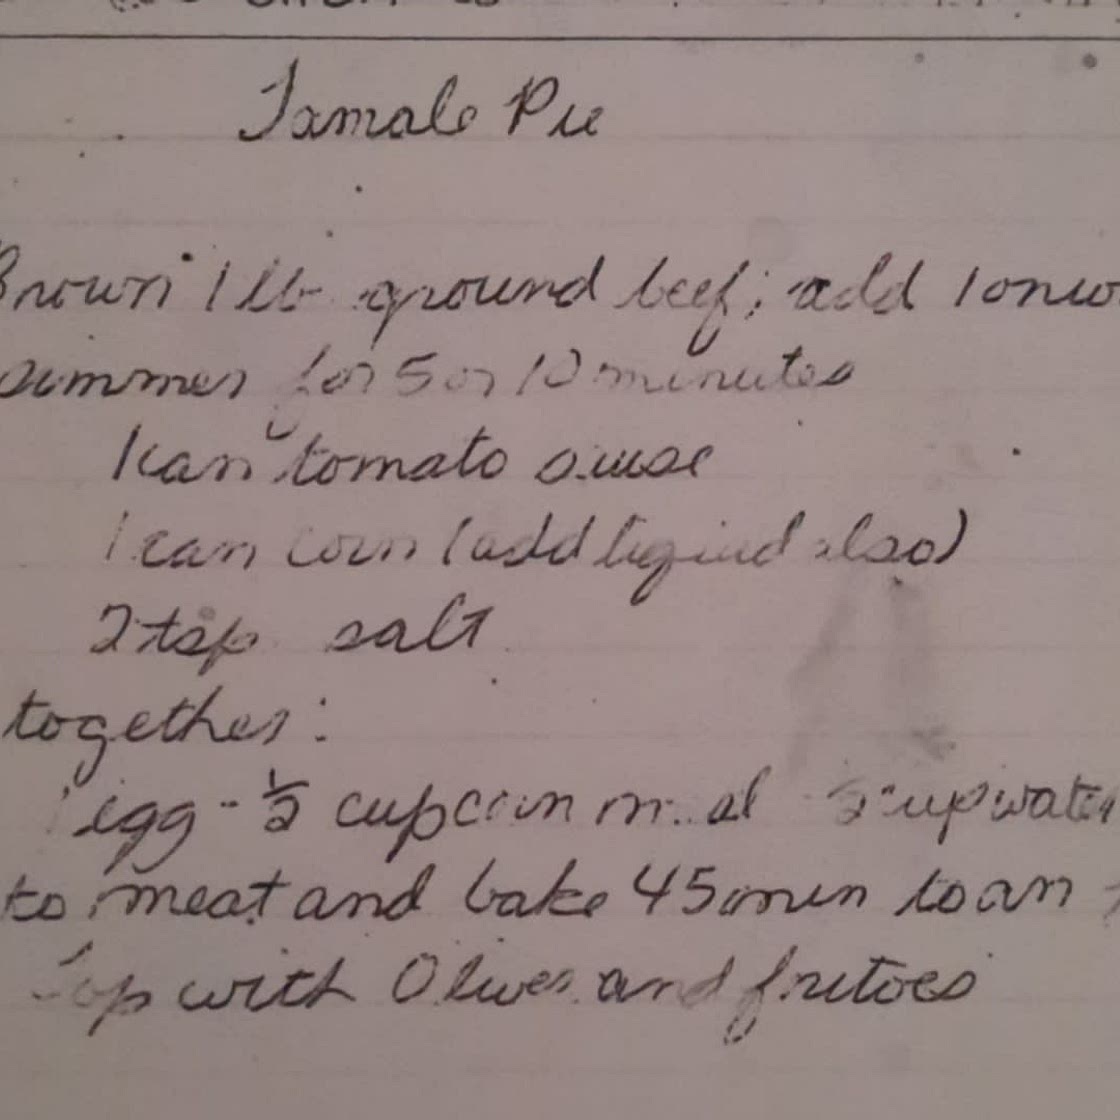 Tamale Pie
Brown 1 lb ground beef; add 1 onio
simmer for 5 or 10 minutes
1 can tomato sause
1 can corn (add liquid also)
2 tsp salt
together:
1 egg - 1/2 cup corn meal cup water
to meat and bake 45 min to an
Top with Olives and fritoes